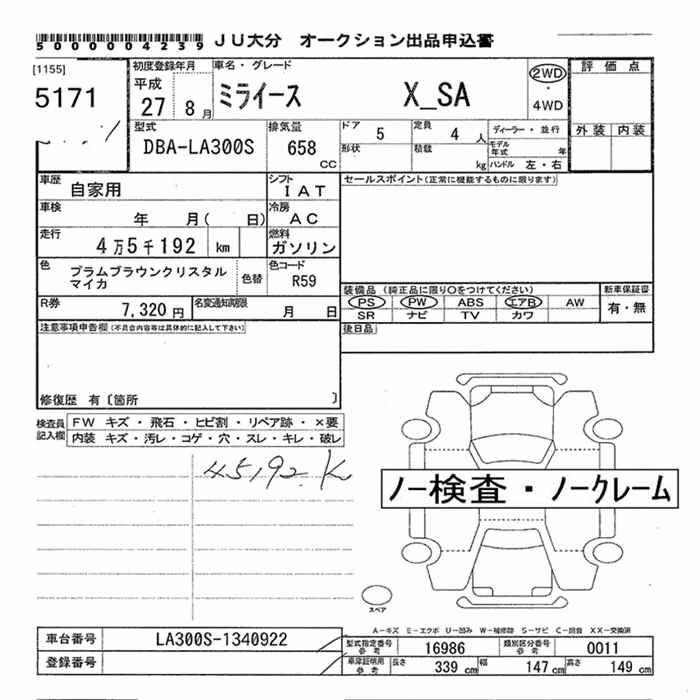 5000004239 JU大分 オークション出品申込書
[1155]
5171
初度登録年月 車名・グレード
平成
27 8月 ミライース X_SA
2WD
・
4WD
評価点
外装 内装
型式
DBA-LA300S
排気量
658
CC
ドア 5 定員 4 人
形状 積載 kg
ディーラー・並行
モデル年式 年
ハンドル 左・右
車歴 自家用 シフト IAT
車検 年 月( 日) 冷房 AC
走行 4万5千192 km 燃料 ガソリン
色 プラムブラウンクリスタル
マイカ
色替 色コード R59
R券 7,320円 名変通知期限 月 日
セールスポイント(正常に機能するものに限ります)
装備品(純正品に限り○をつけてください) 新車保証書
PS PW ABS エアB AW 有・無
SR ナビ TV カワ
後日品
注意事項申告欄(不具合内容等は具体的に記入して下さい)
修復歴 有〔箇所 〕
検査員記入欄
FW キズ・飛石・ヒビ割・リペア跡・×要
内装 キズ・汚レ・コゲ・穴・スレ・キレ・破レ
45192 K
ノー検査・ノークレーム
スペア
A−キズ E−エクボ U−凹み W−補修跡 S−サビ C−腐食 XX−交換済
車台番号 LA300S-1340922
登録番号
型式指定番号 参考 16986 類別区分番号 参考 0011
車庫証明用 参考 長さ 339 cm 幅 147 cm 高さ 149 cm